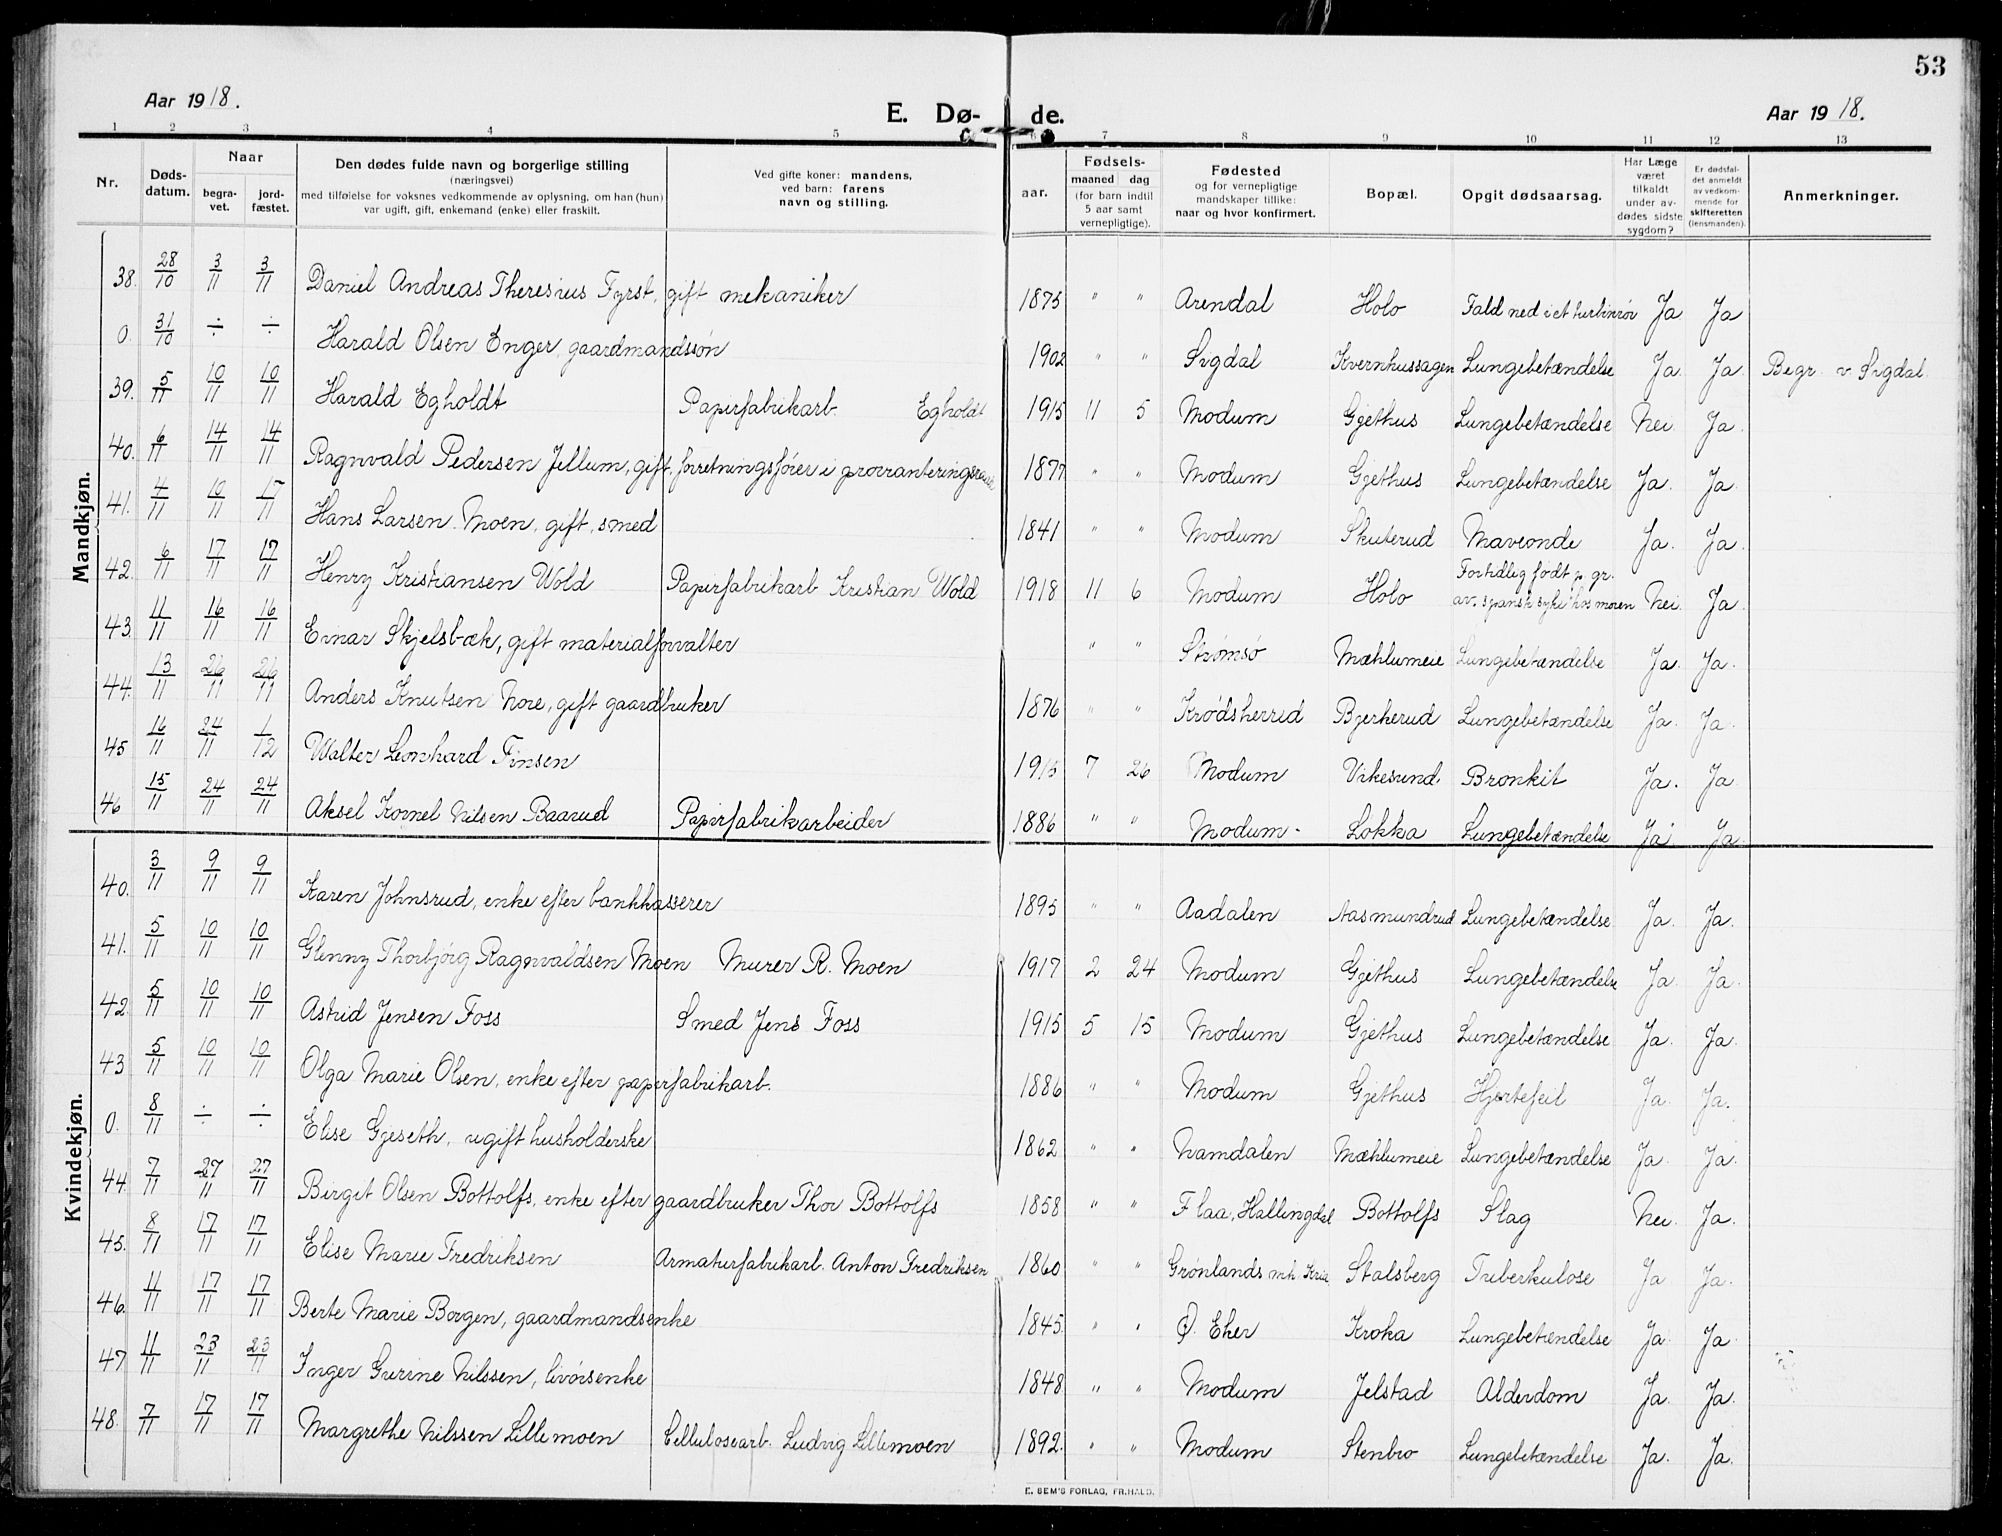 53
Aar 1918. E. Dø- de. Aar 1918.
1 2 3 4 5 7 8 9 10 11 12 13
Nr. Døds-datum. Naar begra-vet. jord-fæstet. Den dødes fulde navn og borgerlige stilling (næringsvei) med tilføielse for voksnes vedkommende av oplysning, om han (hun) var ugift, gift, enkemand (enke) eller fraskilt. Ved gifte koner: mandens, ved barn: farens navn og stilling. aar. Fødsels- maaned dag (for barn indtil 5 aar samt vernepligtige). Fødested og for vernepligtige mandskaper tillike: naar og hvor konfirmert. Bopæl. Opgit dødsaarsag. Har Læge været tilkaldt under av-dødes sidste sygdom? Er dødsfal-det anmeldt av vedkom-mende for skifteretten (lensmanden). Anmerkninger.
Mandkjøn.
38. 28/10 3/11 3/11 Daniel Andreas Theresius Fyrst, gift mekaniker 1875 " " Arendal Holo Fald ned i et turbinrør Ja Ja
0. 31/10 ÷ ÷ Harald Olsen Enger, gaardmandssøn 1902 " " Sigdal Kvernhussagen Lungebetændelse Ja. Ja. Begr. v Sigdal.
39. 5/11 10/11 10/11 Harald Egholdt Papirfabrikarb. Egholdt 1915 11 5 Modum Gjethus Lungebetændelse Nei. Ja.
40. 6/11 14/11 14/11 Ragnvald Pedersen Jellum, gift, forretningsfører i provianteringsraad 1877 " " Modum Gjethus Lungebetændelse Ja. Ja.
41. 4/11 10/11 17/11 Hans Larsen Moen, gift, smed 1841 " " Modum Skuterud Maveonde Ja. Ja.
42. 6/11 17/11 17/11 Henry Kristiansen Wold Papirfabrikarb Kristian Wold 1918 11 6 Modum Holo Fortidlig født p. gr. av "spansk syke" hos moren Nei. Ja.
43. 11/11 16/11 16/11 Einar Skjelsbæk, gift materialforvalter " " Strømsø Mæhlumeie Lungebetændelse Ja. Ja.
44. 13/11 26/11 26/11 Anders Knutsen Nore, gift gaardbruker 1876 " " Krødsherred Bjerkerud Lungebetændelse Ja. Ja.
45 16/11 24/11 1/12 Walter Leonhard Finsen 1915 7 26 Modum Vikesund. Bronkit Ja. Ja.
46 15/11 24/11 24/11 Aksel Kornel Nilsen Baarud Papirfabrikarbeider 1886 " " Modum - Lokka Lungebetændelse Ja. Ja.
Kvindekjøn.
40. 3/11 9/11 9/11 Karen Johnsrud, enke efter bankkasserer 1895 " " Aadalen Aasmundrud Lungebetændelse Ja. Ja.
41. 5/11 10/11 10/11 Glenny Thorbjörg Ragnvaldsen Moen Murer R. Moen 1917 2 24 Modum Gjethus Lungebetændelse Ja. Ja.
42. 5/11 10/11 10/11 Astrid Jensen Foss Smed Jens Foss 1915 5 15 Modum Gjethus Lungebetændelse Ja. Ja.
43 5/11 10/11 10/11 Olga Marie Olsen, enke efter papirfabrikarb. 1886 " " Modum Gjethus Hjertefeil Ja. Ja.
0. 8/11 ÷ ÷ Elise Gjeseth, ugift husholderske 1862 " " Namdalen Mæhlumeie Lungebetændelse Ja. Ja.
44. 7/11 27/11 27/11 Birgit Olsen Bottolfs, enke efter gaardbruker Thor Bottolfs 1858 " " Flaa, Hallingdal Bottolfs Slag Nei. Ja.
45. 8/11 17/11 17/11 Elise Marie Fredriksen Armaturfabrikarb. Anton Fredriksen 1860 " " Grønlands mh. Kria Stalsberg Tuberkulose Ja Ja.
46. 11/11 17/11 17/11 Berte Marie Borgen, gaardmandsenke 1845 " " Ø. Eker Kroka Lungebetændelse Ja. Ja.
47 11/11 23/11 23/11 Inger Gurine Nilssen, livørsenke 1848 " " Modum Jelstad Alderdom Ja. Ja.
48. 7/11 17/11 17/11 Margrethe Nilssen Lillemoen Cellulosearb. Ludvig Lillemoen 1892. " " Modum Stenbro Lungebetændelse Ja. Ja.
E. SEM'S FORLAG, FR.HALD.